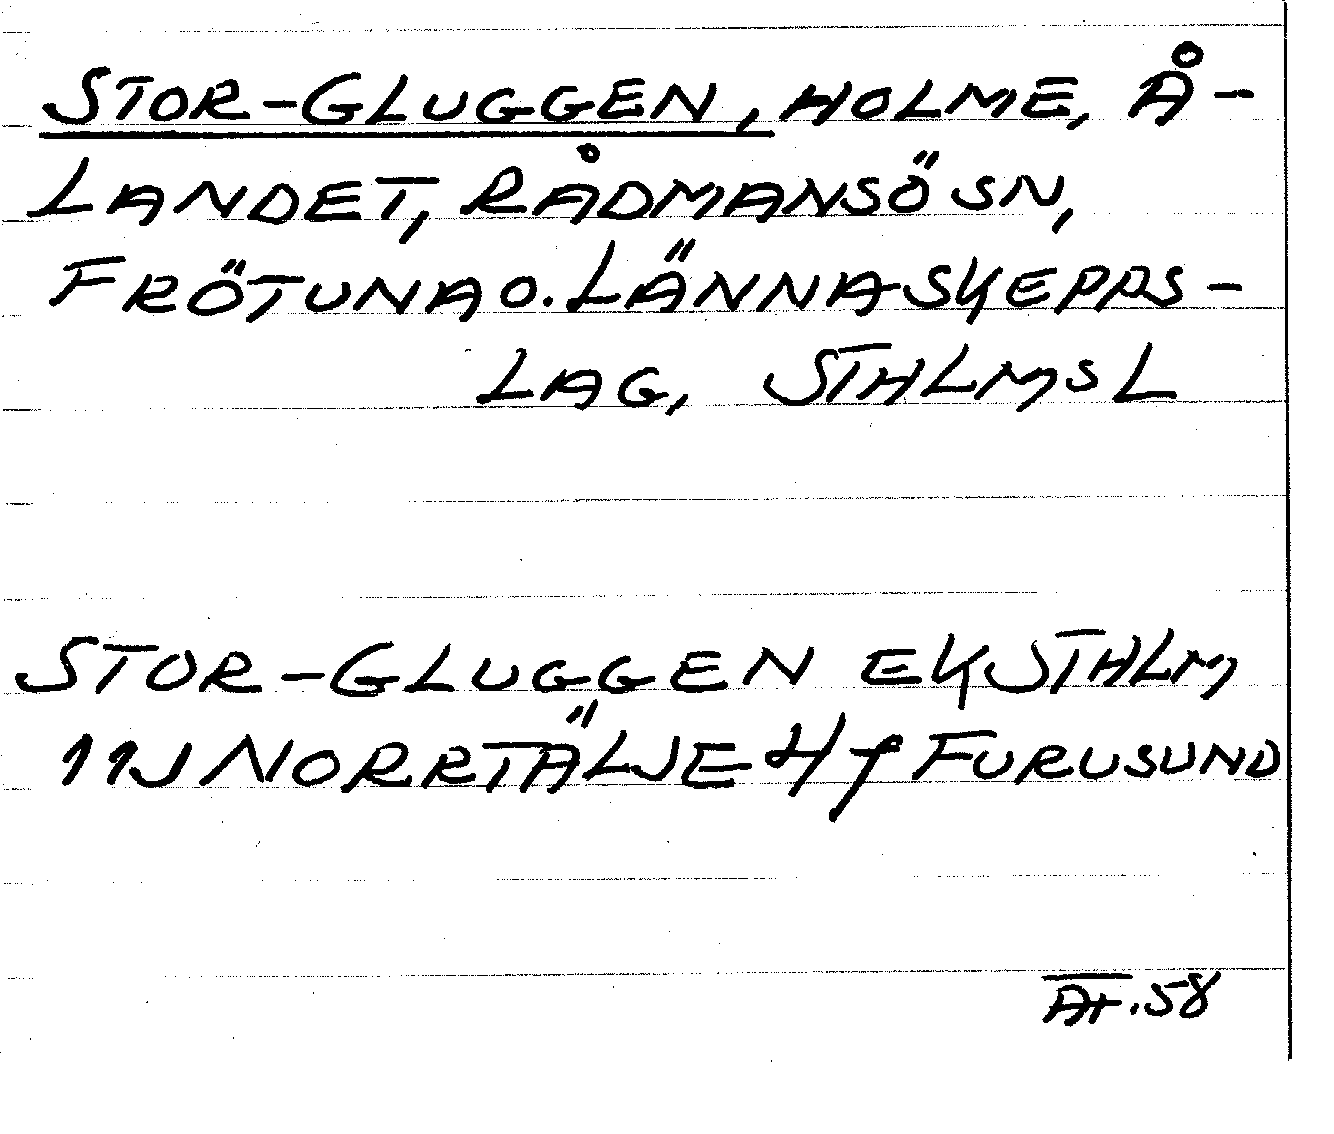 STOR-GLUGGEN, HOLME, Å-
LANDET, RÅDMANSÖ SN,
FRÖTUNA O. LÄNNA SKEPPS-
LAG, STHLMS L
STOR-GLUGGEN EK STHLM
11J NORRTÄLJE
FURUSUND
.58